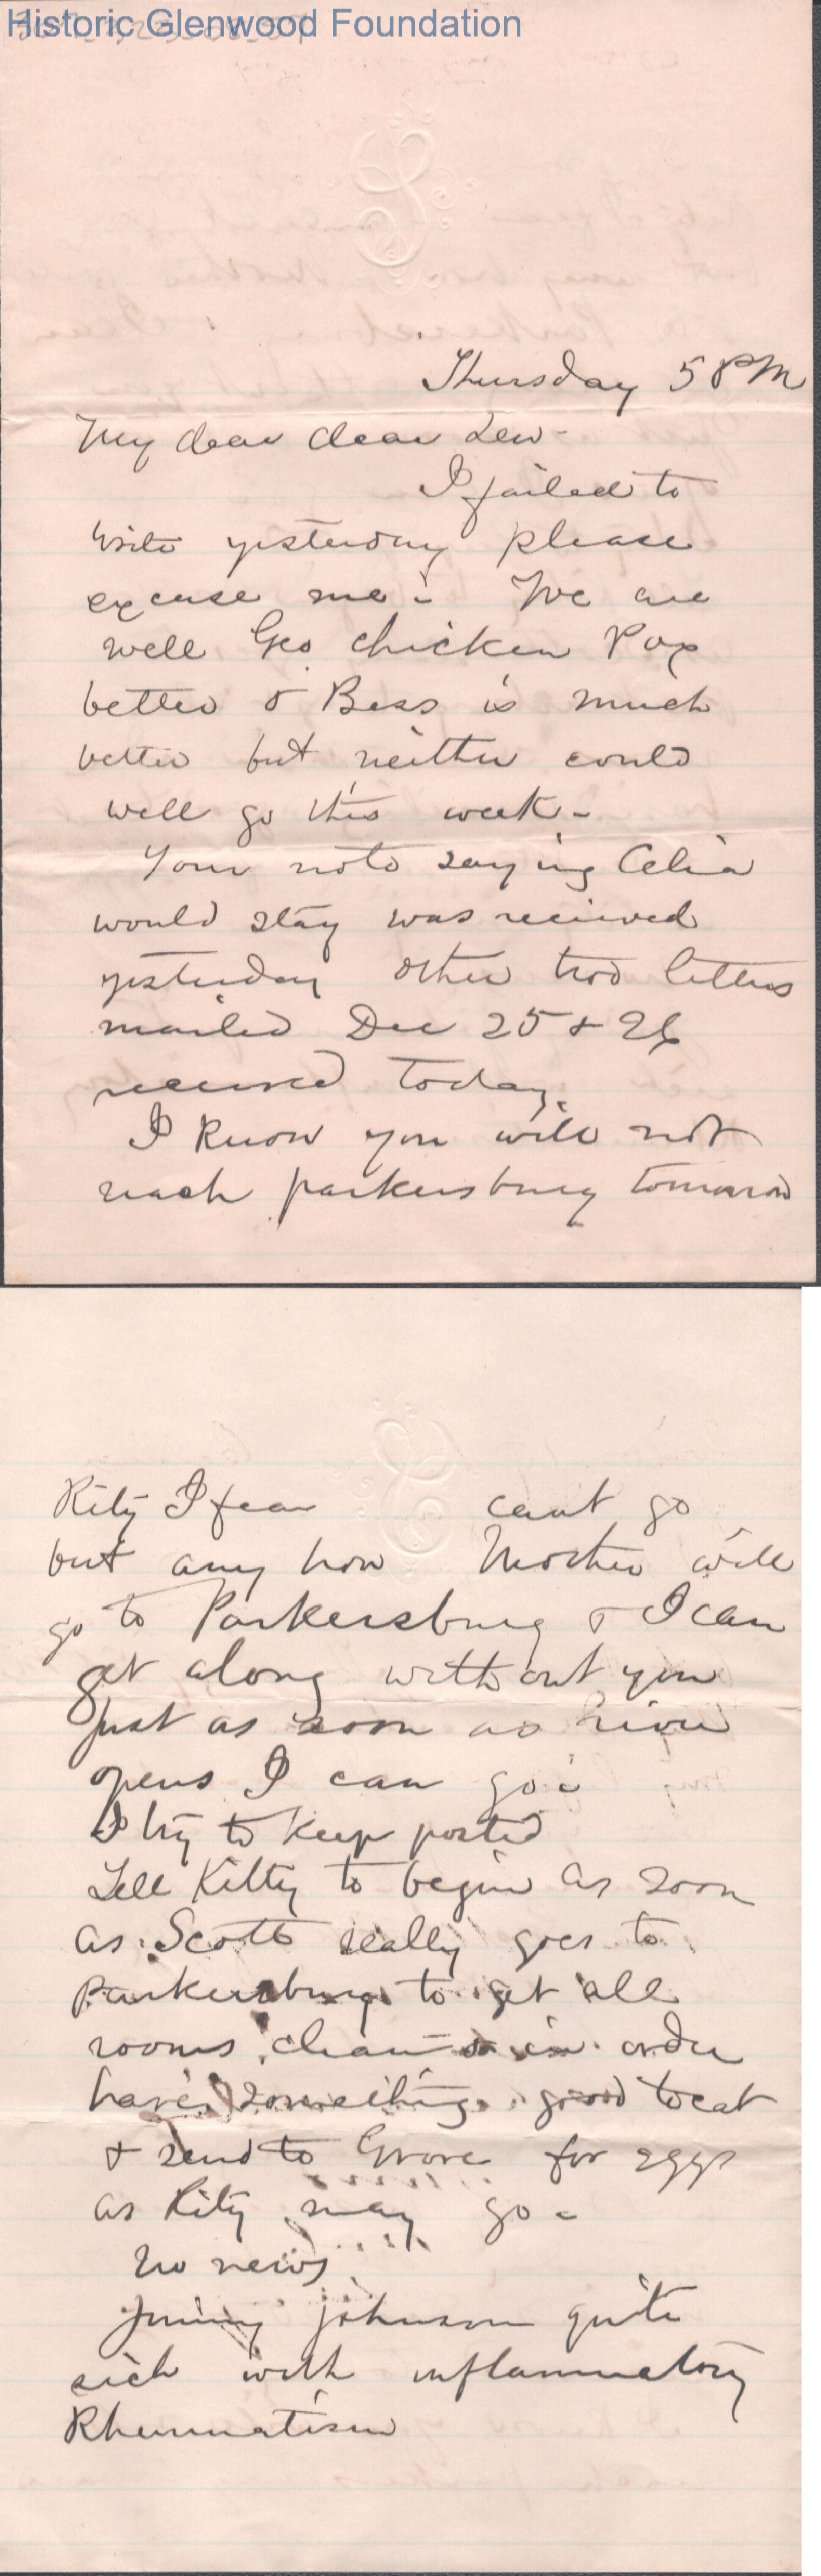 Historic Glenwood Foundation
Thursday 5 PM
My dear dear Lew-
I failed to
write yesterday please
excuse me - We are
well Geo chicken Pox
better & Bess is much
better but neither could
well go this week -
Your note saying Celia
would stay was recieved
yesterday other two letters
mailed Dec 25 & 26
received today.
I know you will not
reach parkersburg tomorrow
Kity I fear cant go
but any how Mother will
go to Parkersburg & I can
get along without you
Just as soon as river
opens I can go -
I try to keep posted
Tell Kitty to begin as soon
as Scott really goes to
Parkersburg to get all
rooms clean & in order
have something good to eat
& send to Grove for eggs
as Kity may go -
No news
Jimmy Johnson quite
sick with inflammatory
Rheumatism